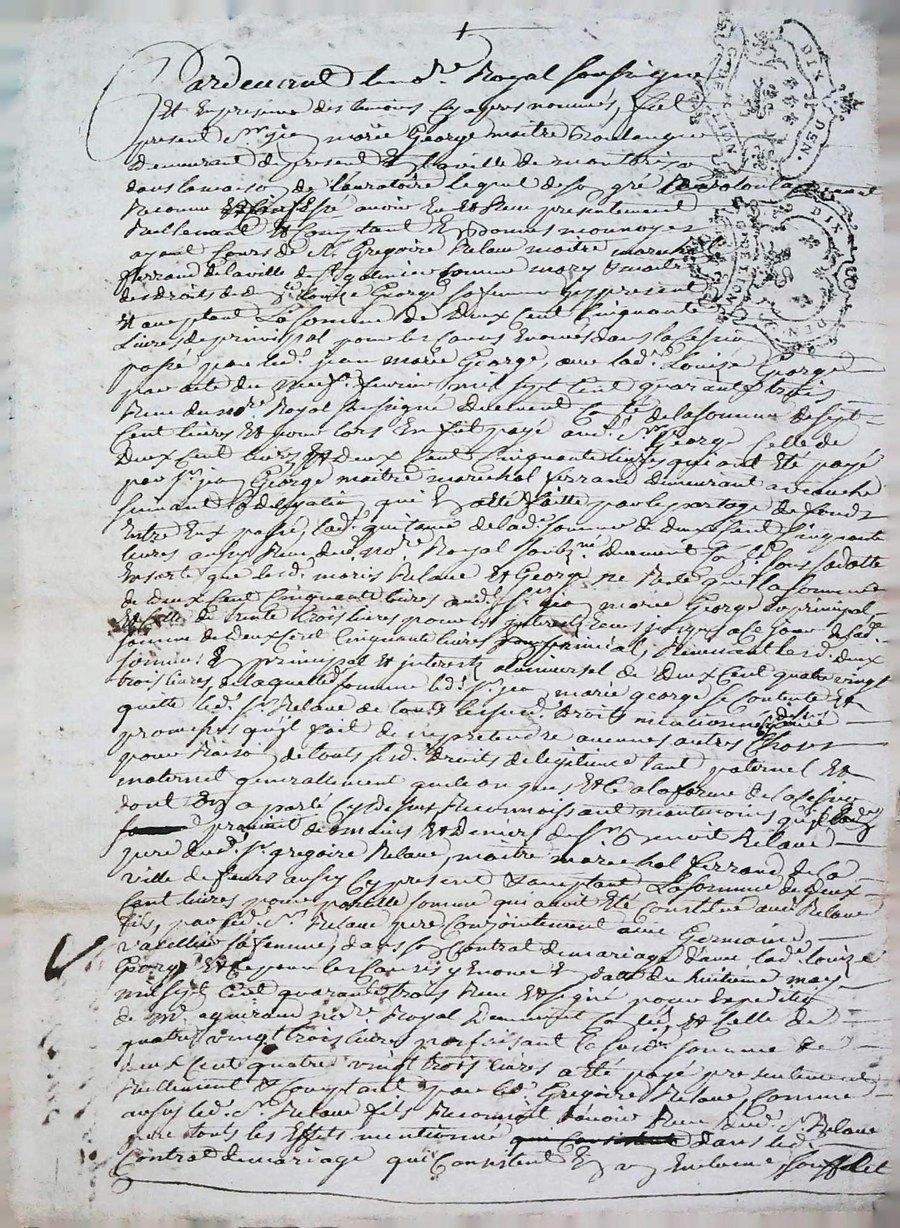 Pardevant le no.re Royal soussigné
Et en presence des temoins cy apres nommés, fut
present S.r jean marie George maitre boulanger
demeurant a present En la ville de montbrison
dans la maison de l'auratoire lequel de son gré
Reconnu avoir Eu et Receu presentement
Reellement et Comptant En bonnes monnoyes
ayant Cours de S.r Gregoire Relave maitre marechal
ferrand de la ville de S.t galmier Comme mary et maitre
des droits de d.e Louise George sa femme cy present
Et acceptant La somme de Deux Cent Cinquante
Livres de principal pour les Causes Enoncés dans la Cession
passé par led. jean marie George, a lad. Louise George
par acte du neuf.e fevrier mil sept Cent quarante trois
Receu du no.re Royal soussigné duement Con.lé de la somme de sept
Cent livres Et pour lors En fut payé aud. S.r George Celle de
Deux Cent livres Et Deux Cent Cinquante livres qui ont été payé
par S.r jean George maitre marechal ferrand demeurant a
suivant la delegation qui En a été faitte par le partage
Entre Eux passé, lad. quittance de lad. somme de deux Cent Cinquante
livres aussy Receu dud. no.re Royal duement
Ensorte que lesd. mariés Relave Et George ne Reste que la somme
de deux Cent Cinquante livres aud. S.r jean marie George de principal
Et Celle de trente trois livres pour les interets Echeus jusques a ce jour de lad.
somme de deux Cent Cinquante livres Revenant lesd. deux
sommes En principal Et interets a Celle de Deux Cent quatre vingt
trois livres, de laquelle somme led. S.r jean marie george se Contente Et
quitte led. S.r Relave de tous lesd. Droits mentionnes
promesses qu'il fait de n'y pretendre aucunes autres Choses
pour Raison de tous sesd. droits de legitime tant paternel Et
maternel generallement quelconques Et Ce a la forme de la Cession
dont On a parlé Cy dessus Reconnoissant neantmoins
provient des mains Et deniers de S.r Benoit Relave
pere dud. S.r gregoire Relave, maitre marechal ferrand de la
ville de feurs aussy Cy present Et acceptant La somme de Deux
Cent livres pour pareille somme qui avoit Eté Constitué aud. Relave
fils, par led. S.r Relave pere Conjointement avec Germaine
sa femme, dans son Contrat de mariage d'avec lad. Louize
George Et Ce pour les Causes y Enoncé En datte du huitieme may
mil sept Cent quarante trois Receu Et signé pour Expedition
de M.e Royal Duement Con.lé, Et Celle de
quatre vingt trois livres parfaisant lesd. somme de
deux Cent quatre vingt trois livres a été payé presentement
Reellement Et Comptant par led. Gregoire Relave, Comme
aussy led. S.r Relave fils Reconnoit d'avoir Receu dud. S.r Relave
pere tous les Effets mentionné dans led.
Contrat de mariage qui Consistent En un Enclume soufflet